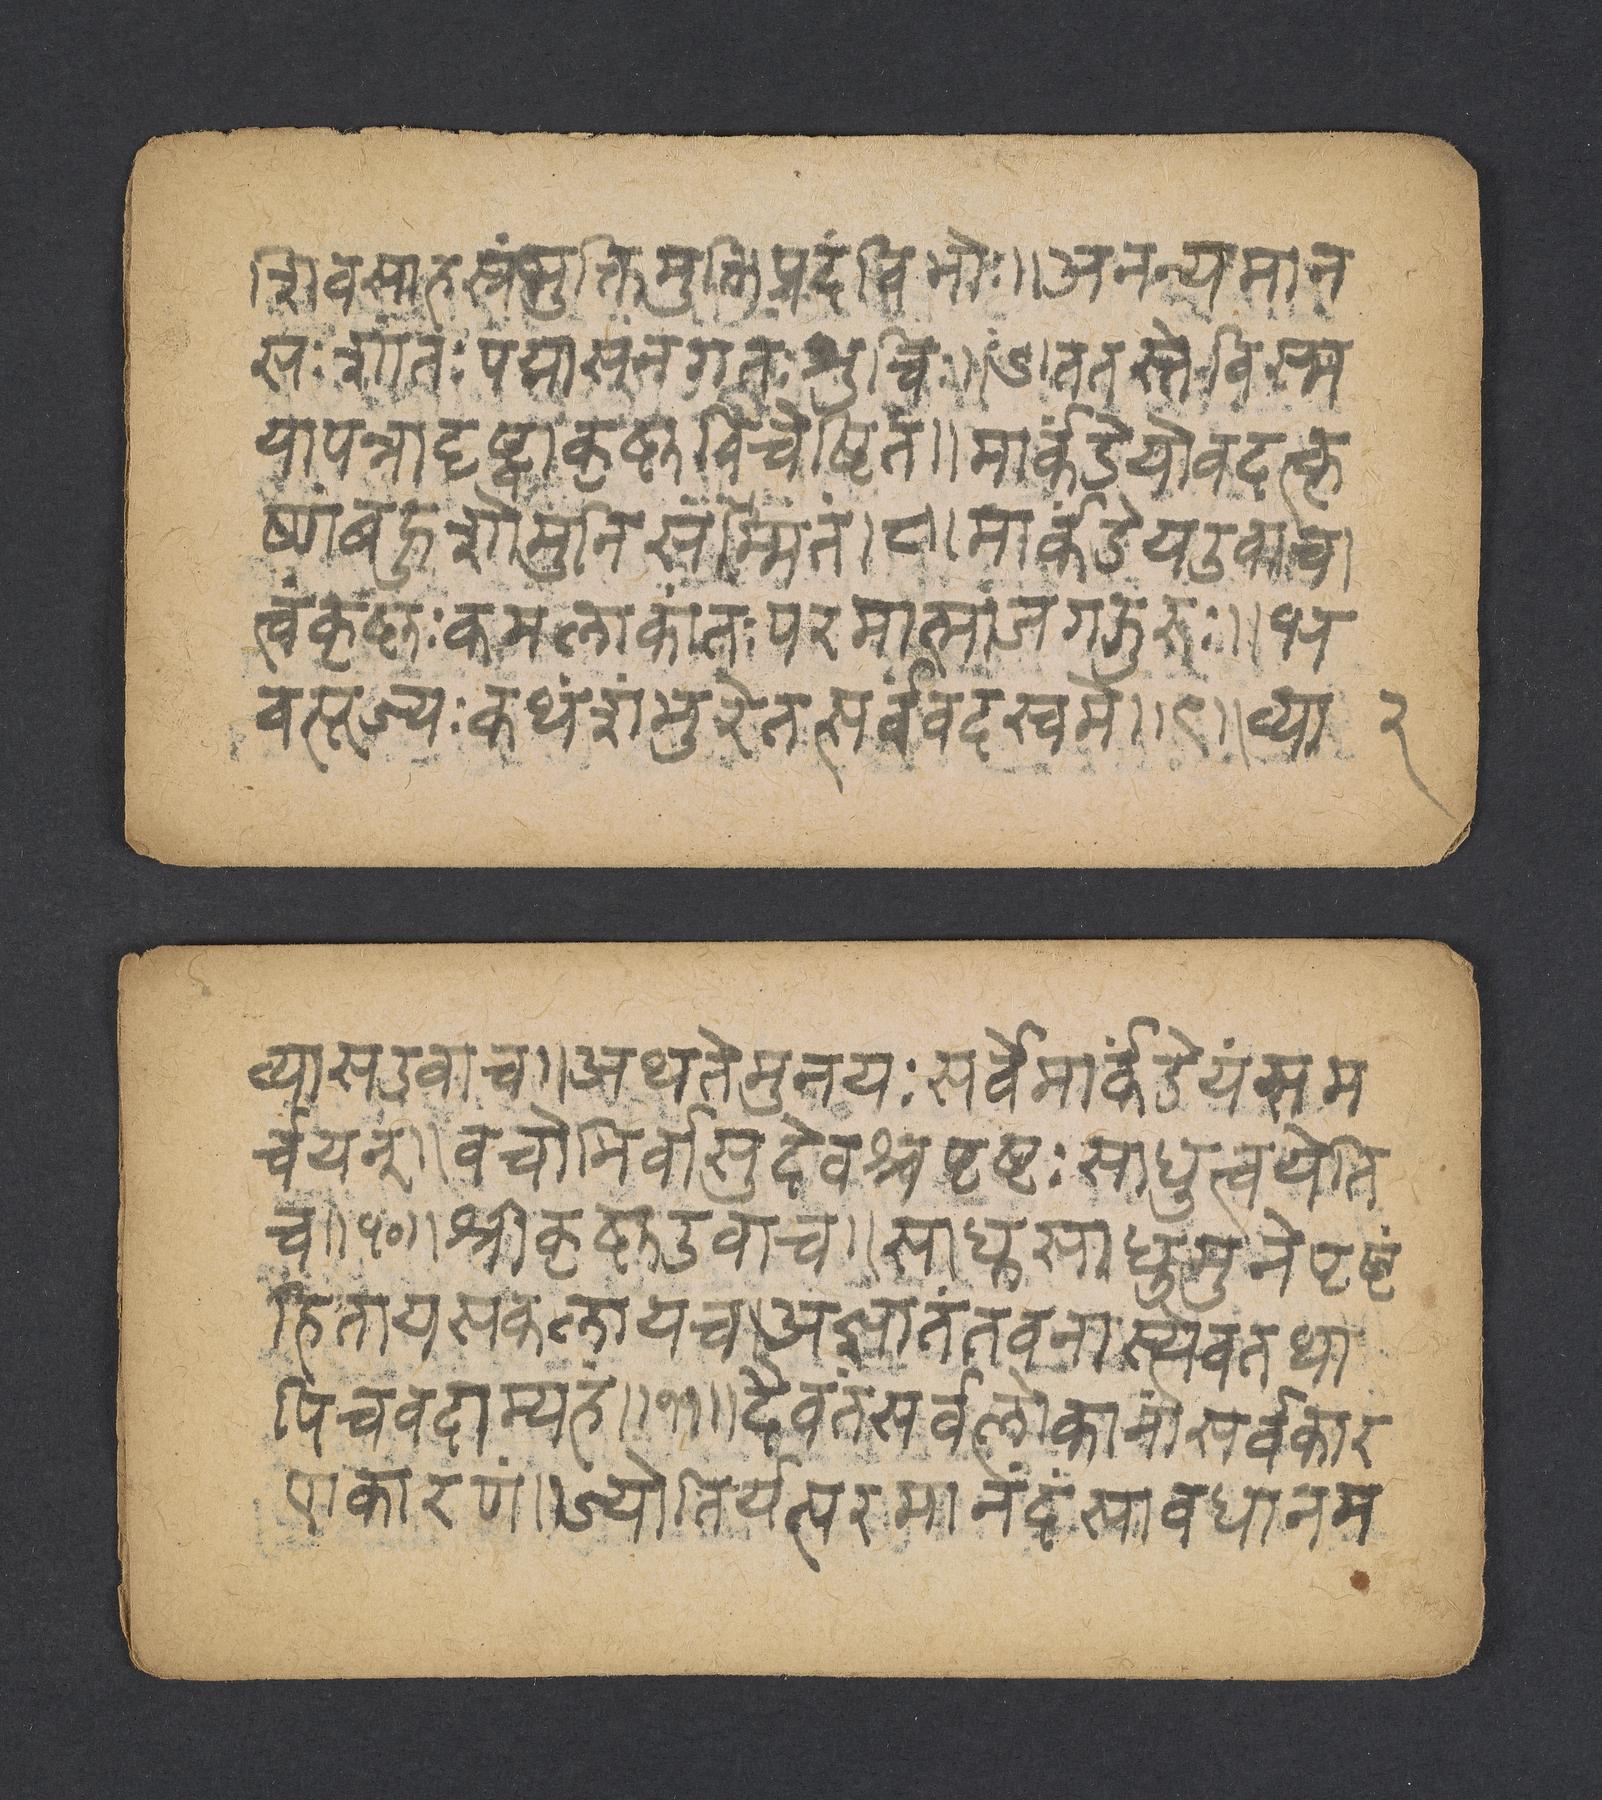 शिवसाहस्त्रंभुक्तिमुक्तिप्रदंविभोः॥अनन्यमान
सःशांतःपद्मासनगतःशुचिः॥७॥ततस्तेविस्म
यापन्नादृष्ट्वाकृष्णविचेष्टितं॥मार्कंडेयोवदत्कृ
ष्णंबहुशोमुनिसंम्मितं।८॥मार्कंडेयउवाच।
त्वंकृष्णःकमलाकांतःपरमात्माजगद्गुरुः॥भ
वत्पूज्यःकथंशंभुरेतत्सर्वंवदस्वमे॥९॥व्या
२
व्यासउवाच॥अथतेमुनयःसर्वेमार्कंडेयंसम
र्चयन्॥वचोभिर्वासुदेवश्चपृष्टःसाधुत्वयेति
च॥१०॥श्रीकृष्णउवाच॥साधुसाधुमुनेपृष्टं
हितायसकलायच।अज्ञातंतवनास्त्येवतथा
पिचवदाम्यहं॥११॥दैवतंसर्वलोकानांसर्वकार
णकारणं॥ज्योतिर्यत्परमानंदंसावधानम